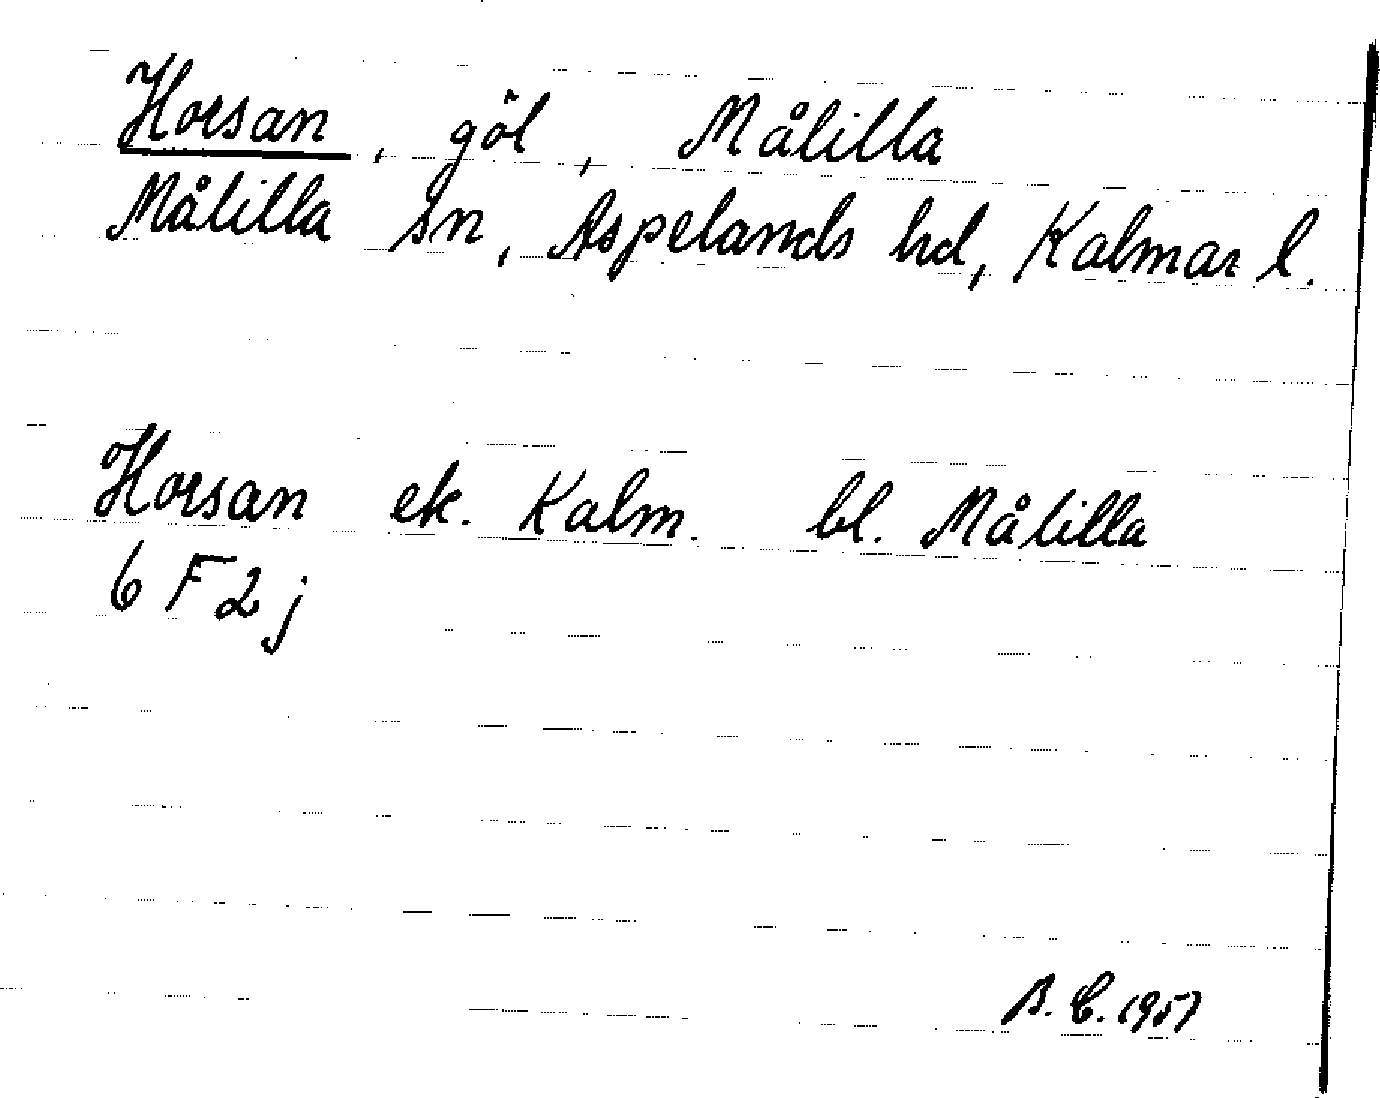 Horsan, göl, Målilla
Målilla sn, Aspelands hd, Kalmar l.
Horsan ek. Kalm. bl. Målilla
6 F 2 j
B. C. 1957